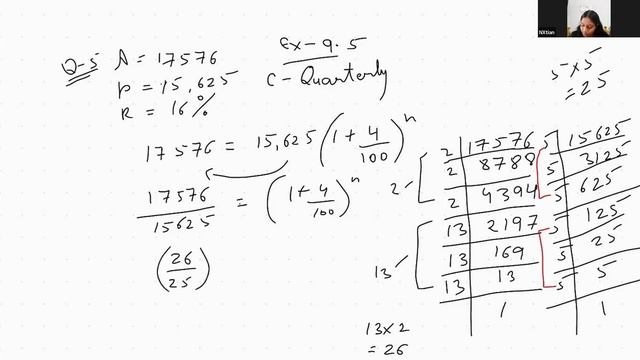 Ex-9.5
Q-5 A = 17576
P = 15,625
R = 16%
C - Quarterly
17576 = 15,625 (1 + 4/100)^n
17576/15625 = (1 + 4/100)^n
(26/25)
5 x 5
= 25
2 | 17576
2 | 8788
2 | 4394
13 | 2197
13 | 169
13 | 13
1
2
13
5 | 15625
5 | 3125
5 | 625
5 | 125
5 | 25
5 | 5
1
13 x 2
= 26
NXtian